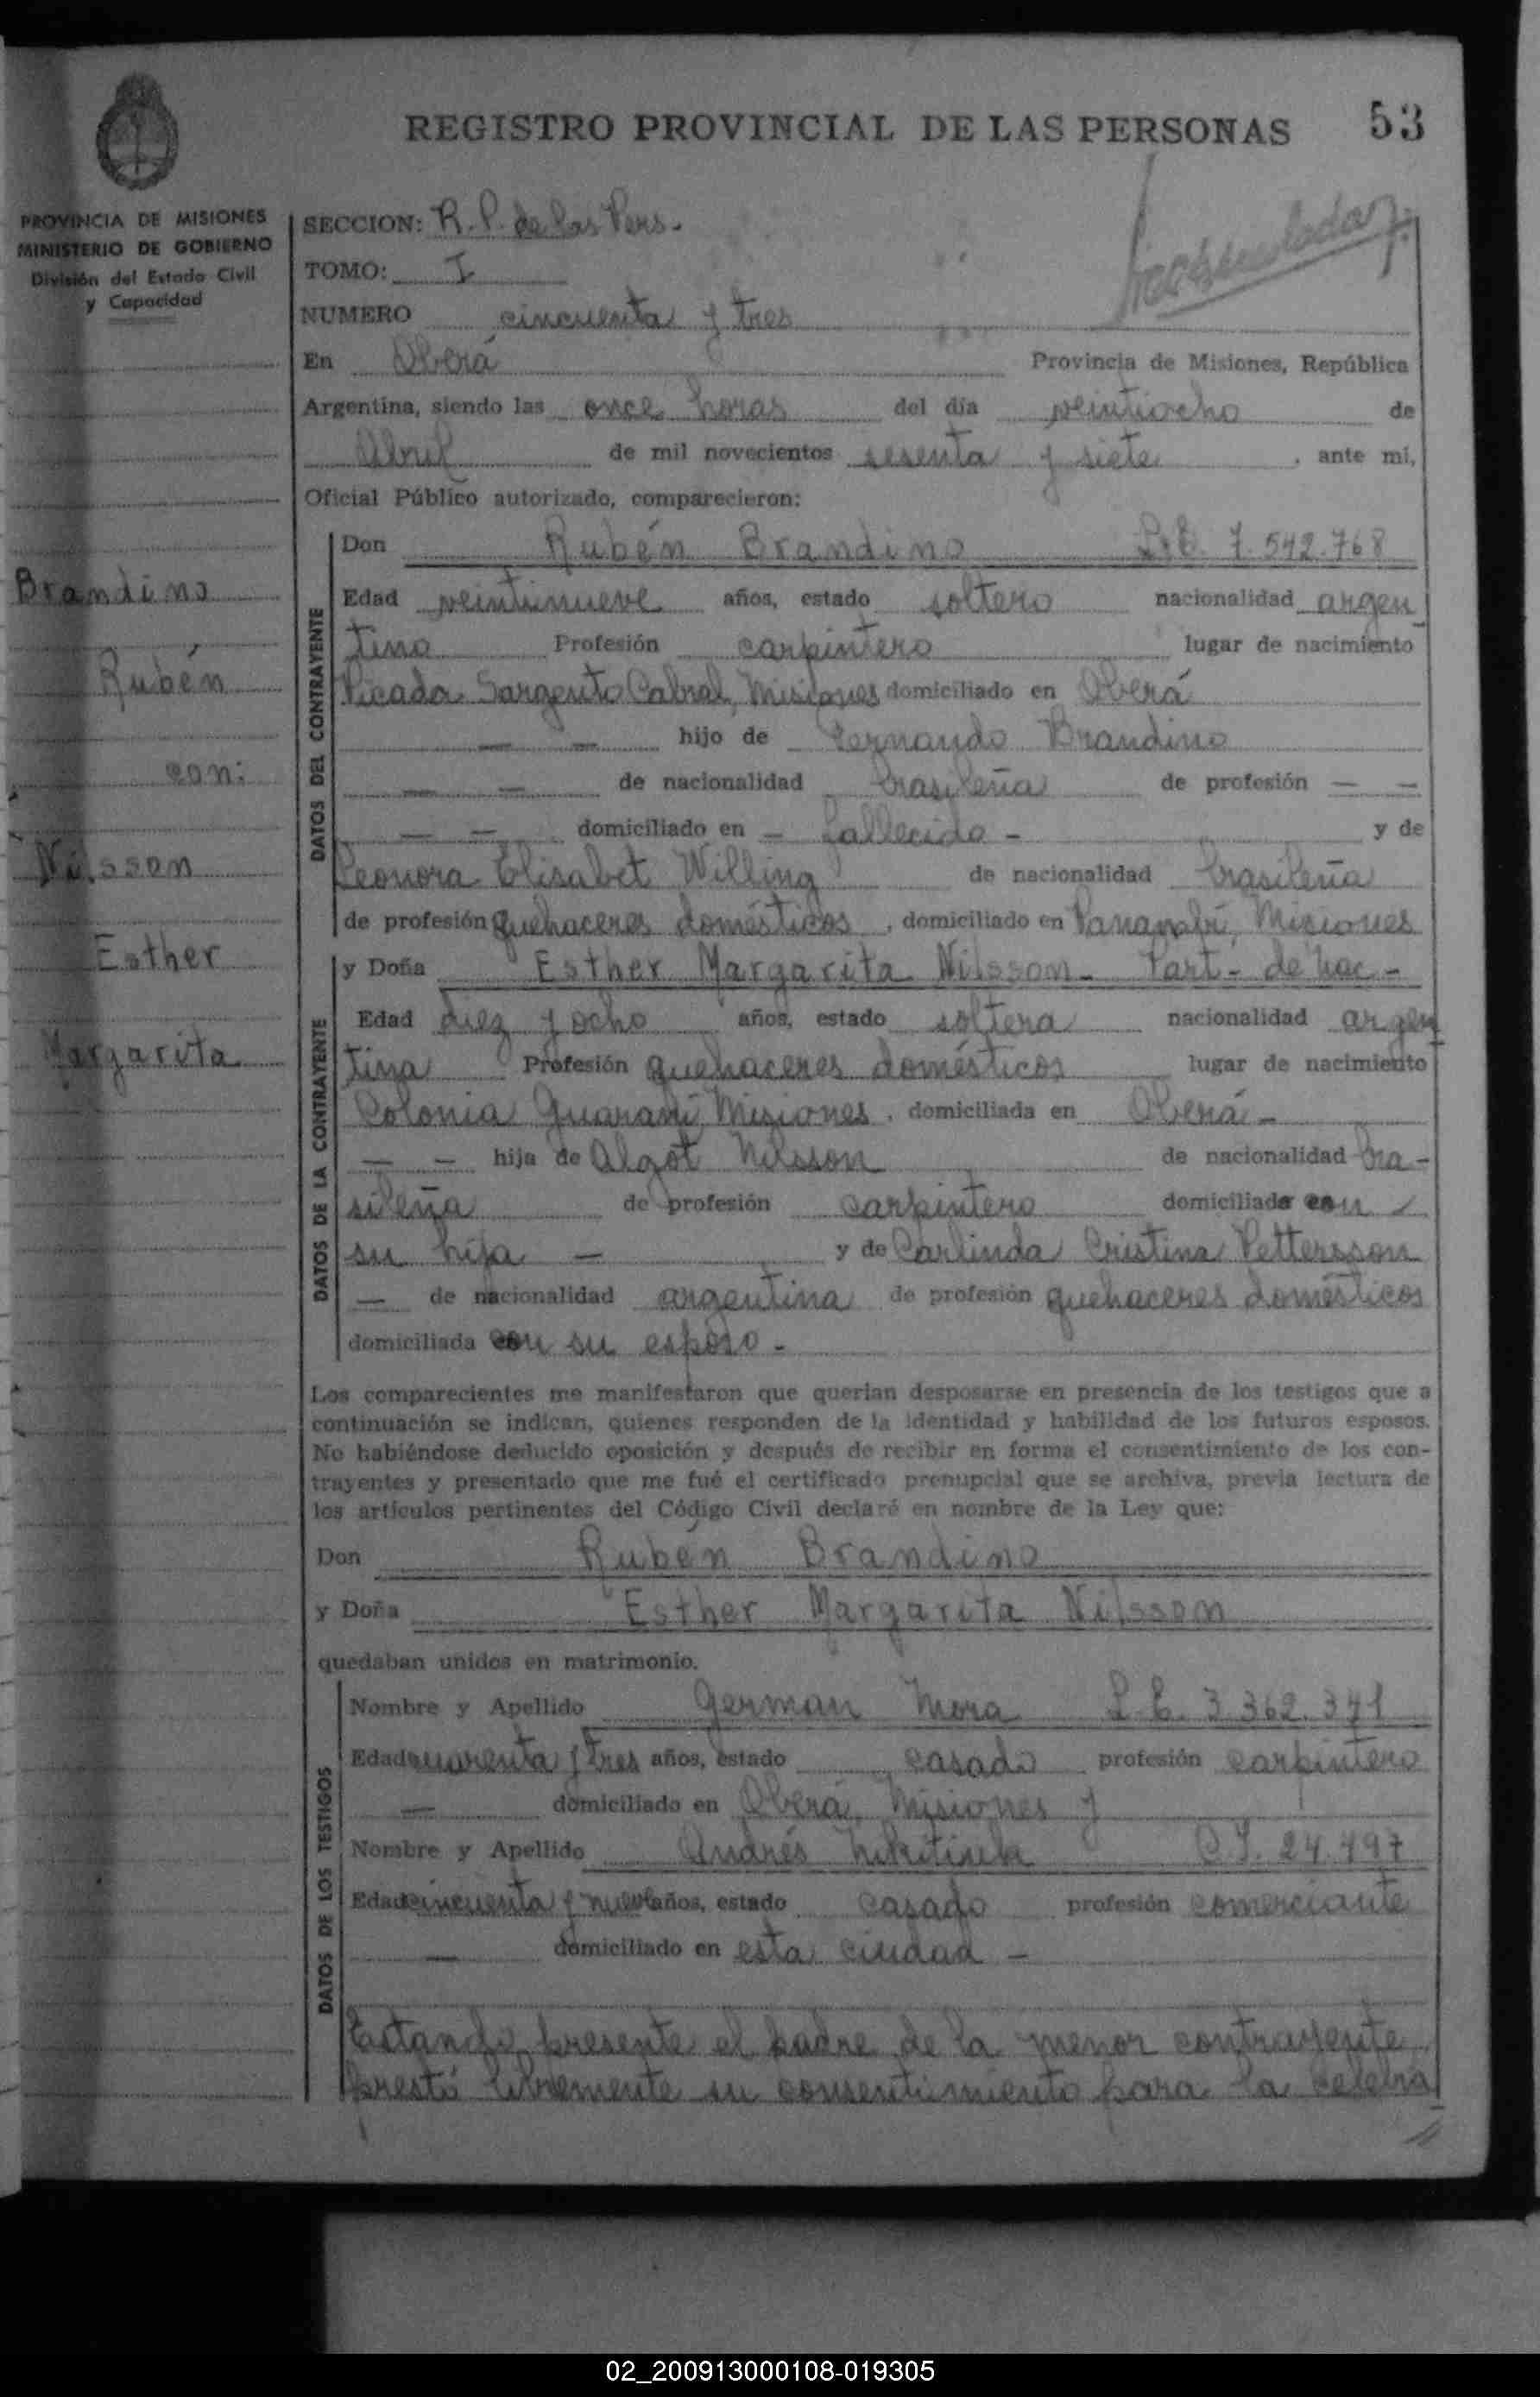 REGISTRO PROVINCIAL DE LAS PERSONAS 53
PROVINCIA DE MISIONES
MINISTERIO DE GOBIERNO
División del Estado Civil
y Capacidad
SECCION: R. P. de las Pers.
TOMO: I
NUMERO cincuenta y tres
En Oberá Provincia de Misiones, República
Argentina, siendo las once horas del día veintiocho de
Abril de mil novecientos sesenta y siete, ante mí,
Oficial Público autorizado, comparecieron:
Brandino
Rubén
con:
Nilsson
Esther
Margarita
DATOS DEL CONTRAYENTE
Don Rubén Brandino L.E. 7.542.768
Edad veintinueve años, estado soltero nacionalidad argen
tino Profesión carpintero lugar de nacimiento
Picada Sargento Cabral, Misiones domiciliado en Oberá
— — hijo de Fernando Brandino
— — de nacionalidad brasileña de profesión — —
— — domiciliado en — fallecido — y de
Leonora Elisabet Willing de nacionalidad brasileña
de profesión quehaceres domésticos, domiciliado en Panambí, Misiones
DATOS DE LA CONTRAYENTE
y Doña Esther Margarita Nilsson - Part - de nac -
Edad diez y ocho años, estado soltera nacionalidad argen
tina Profesión quehaceres domésticos lugar de nacimiento
Colonia Guaraní, Misiones, domiciliada en Oberá -
— — hija de Algot Nilsson de nacionalidad bra-
sileña de profesión carpintero domiciliado con
su hija — y de Carlinda Cristina Pettersson
— de nacionalidad argentina de profesión quehaceres domésticos
domiciliada con su esposo -
Los comparecientes me manifestaron que querían desposarse en presencia de los testigos que a
continuación se indican, quienes responden de la identidad y habilidad de los futuros esposos.
No habiéndose deducido oposición y después de recibir en forma el consentimiento de los con-
trayentes y presentado que me fué el certificado prenupcial que se archiva, previa lectura de
los artículos pertinentes del Código Civil declaré en nombre de la Ley que:
Don Rubén Brandino
y Doña Esther Margarita Nilsson
quedaban unidos en matrimonio.
DATOS DE LOS TESTIGOS
Nombre y Apellido German Mora L.E. 3.362.341
Edad cuarenta y tres años, estado casado profesión carpintero
— domiciliado en Oberá, Misiones y
Nombre y Apellido Andrés C.I. 24.497
Edad cincuenta y nueve años, estado casado profesión comerciante
— domiciliado en esta ciudad —
Estando presente el padre de la menor contrayente
prestó libremente su consentimiento para la celebra
02_200913000108-019305